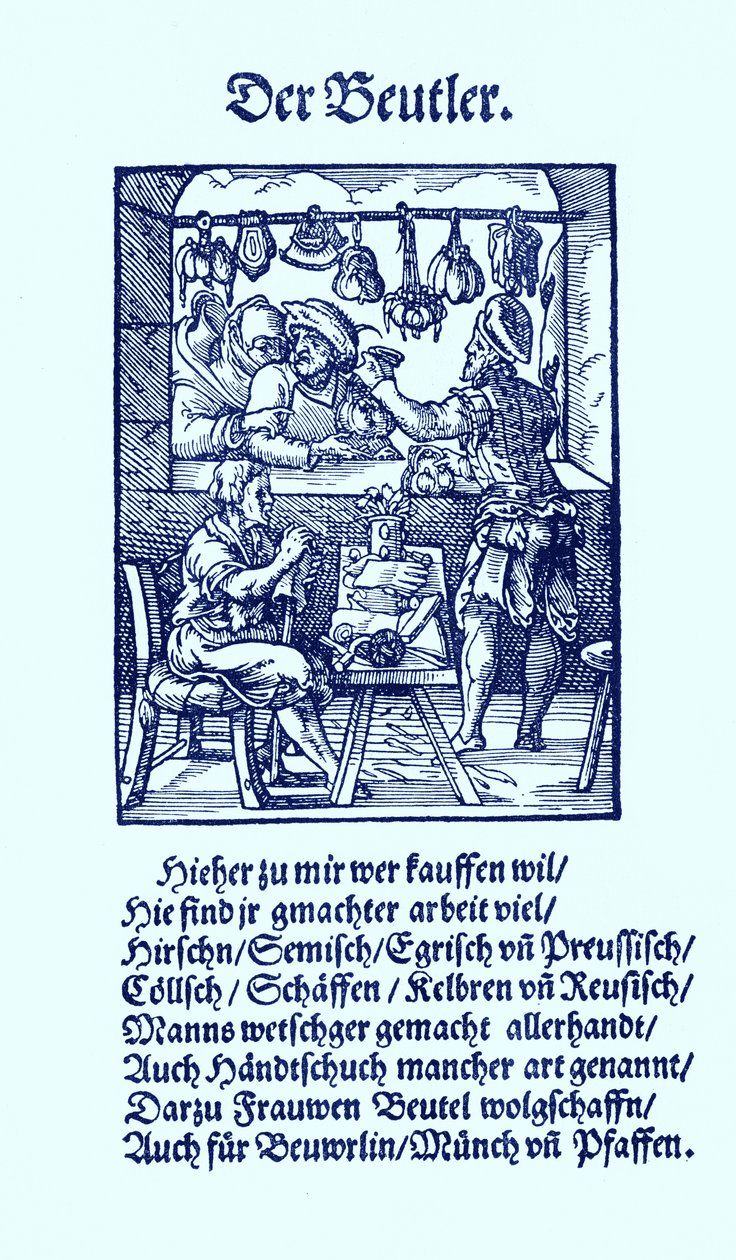 Der Beutler.
Hieher zu mir wer kauffen wil/
Hie find jr gmachter arbeit viel/
Hirschn/Semisch/Egrisch vñ Preussisch/
Cöllsch / Schäffen / Kelbren vñ Reusisch/
Manns wetschger gemacht allerhandt/
Auch Händtschuch mancher art genannt/
Darzu Frauwen Beutel wolgschaffn/
Auch für Beuwrlin/Münch vñ Pfaffen.